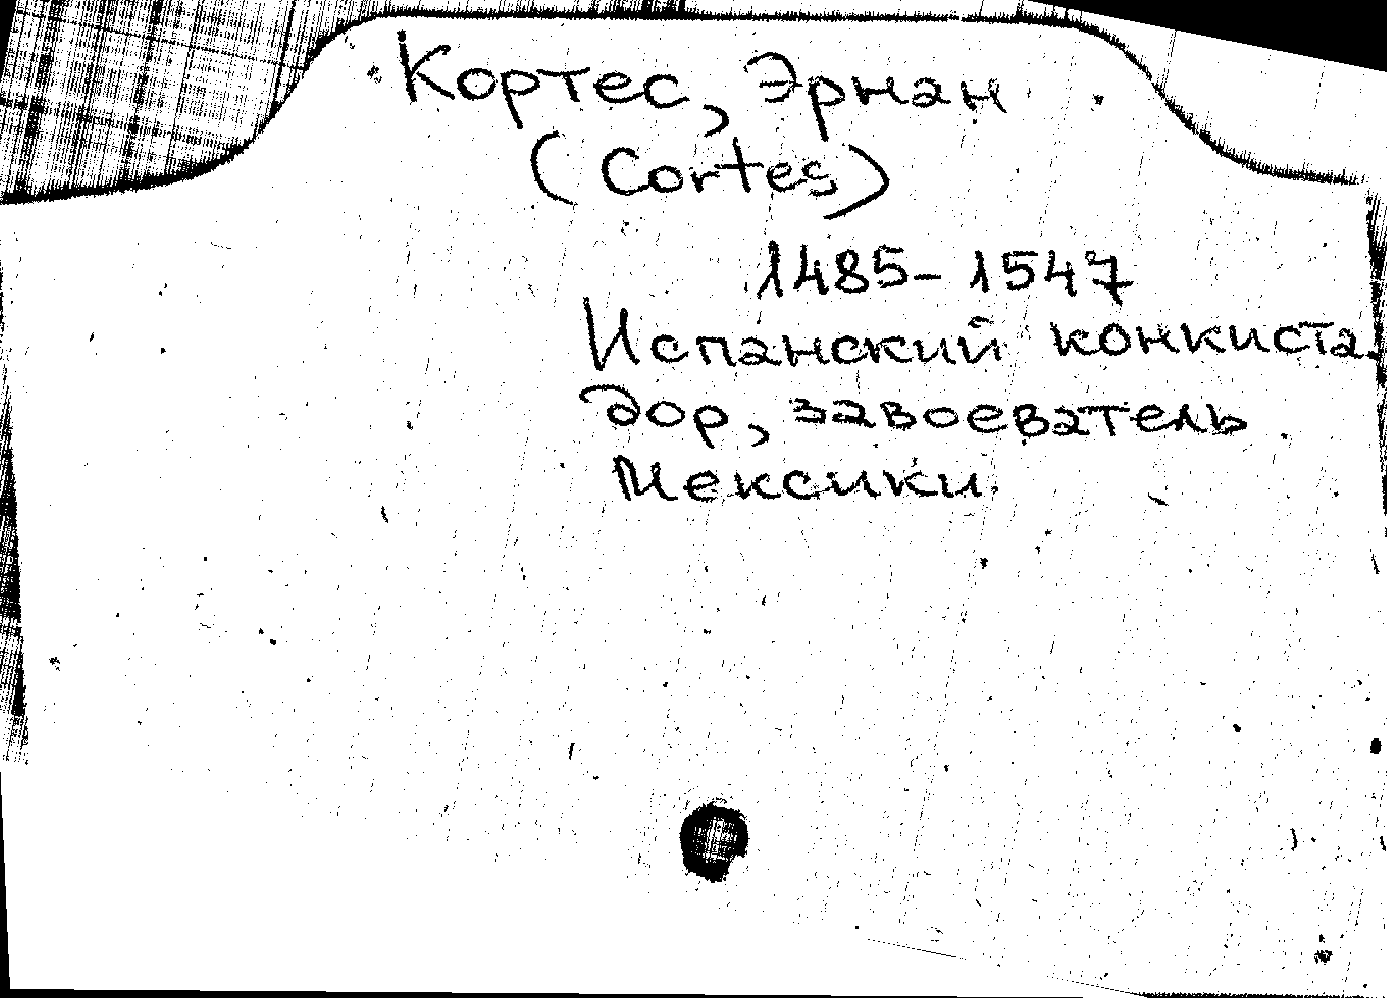 Кортес, Эрнан
(Cortes)
1485-1547
Испанский конкиста-
дор, завоеватель
Мексики